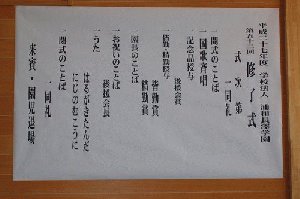 平成二十七年度 学校法人 浦和真澄学園
修了式
式次第
一同礼
開式のことば
一 国歌斉唱
記念品授与
後援会賞
皆勤賞
精勤賞
園長のことば
一 お祝いのことば
後援会長
一 うた
はるがきたんだ
にじのむこうに
閉式のことば
一同礼
来賓・園児退場